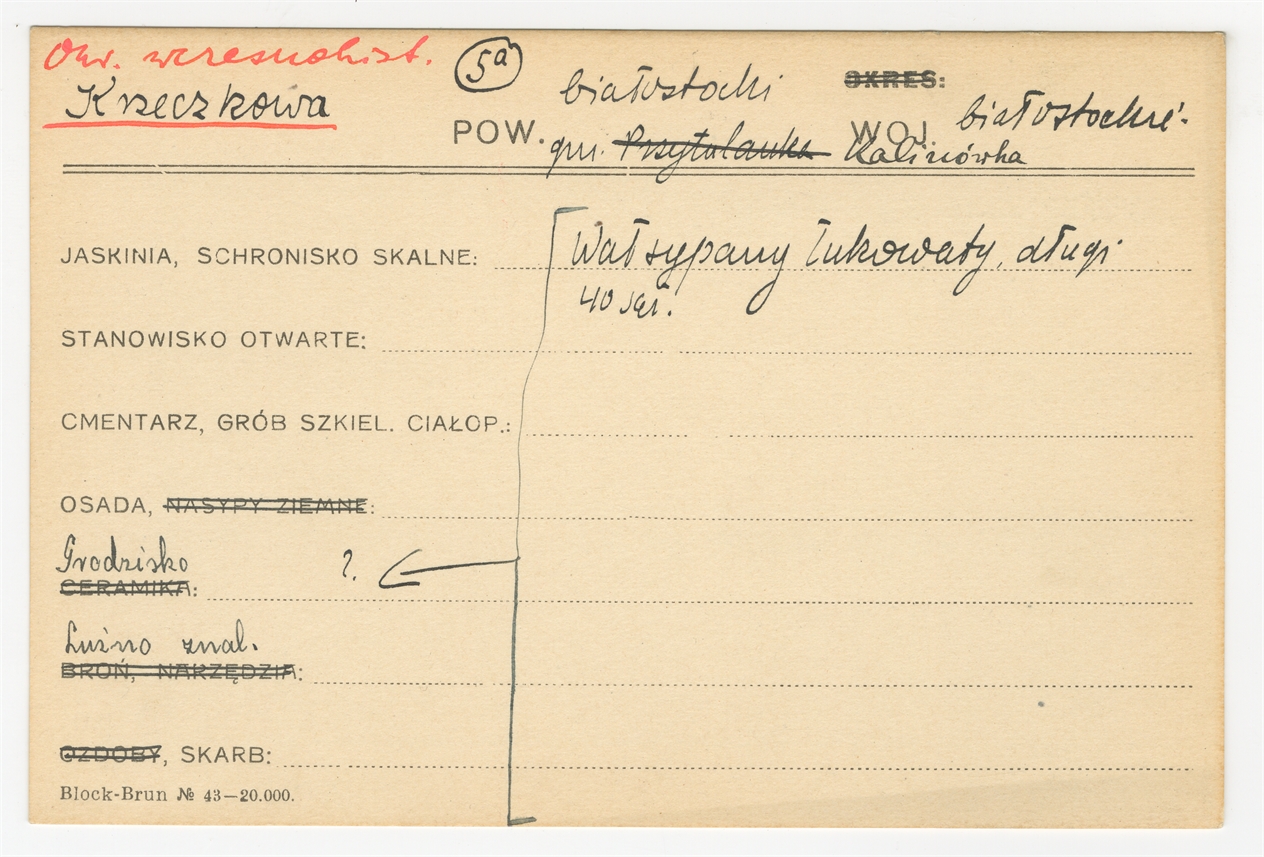 Okr. wczesnohist.
Krzeczkowa
5a
OKRES:
POW. białostocki WOJ. białostockie.
gm. Przytulanka Kalinówka
JASKINIA, SCHRONISKO SKALNE: Wał sypany łukowaty, długi
40 sąż.
STANOWISKO OTWARTE:
CMENTARZ, GRÓB SZKIEL. CIAŁOP.:
OSADA, NASYPY ZIEMNE:
Grodzisko ?
CERAMIKA:
Luźno znal.
BROŃ, NARZĘDZIA:
OZDOBY, SKARB:
Block-Brun № 43—20.000.